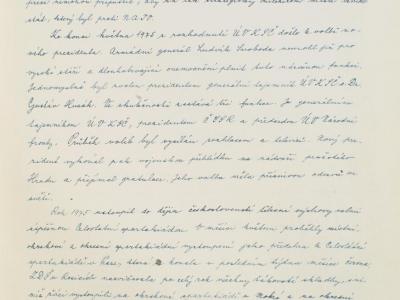 stát, který byl proti N.A.T.O.
Ke konci května 1975 z rozhodnutí ÚV KSČ došlo k volbě no-
vého presidenta. Armádní generál Ludvík Svoboda nemohl již pro
vysoké stáří a dlouhotrvající onemocnění plnit tuto náročnou funkci.
Jednomyslně byl zvolen presidentem generální tajemník ÚV KSČ s. Dr.
Gustáv Husák. Ve skutečnosti zastává tři funkce. Je generálním
tajemníkem ÚV KSČ, presidentem ČSSR a předsedou ÚV Národní
fronty. Průběh voleb byl vysílán rozhlasem a televizí. Nový pre-
sident vykonal pak vojenskou přehlídku na nádvoří pražského
Hradu a přijímal gratulace. Jeho volba měla příznivou odezvu ve
světě.
Rok 1975 nastoupil do dějin československé tělesné výchovy
Celostátní spartakiádou. V měsíci květnu probíhaly místní,
okrskové a okresní spartakiádní vystoupení jako předehra k Celostátní
spartakiádě v Praze, která se konala v posledním týdnu měsíce června.
ZDŠ v Košicích nacvičovala po celý rok všechny žákovské skladby,